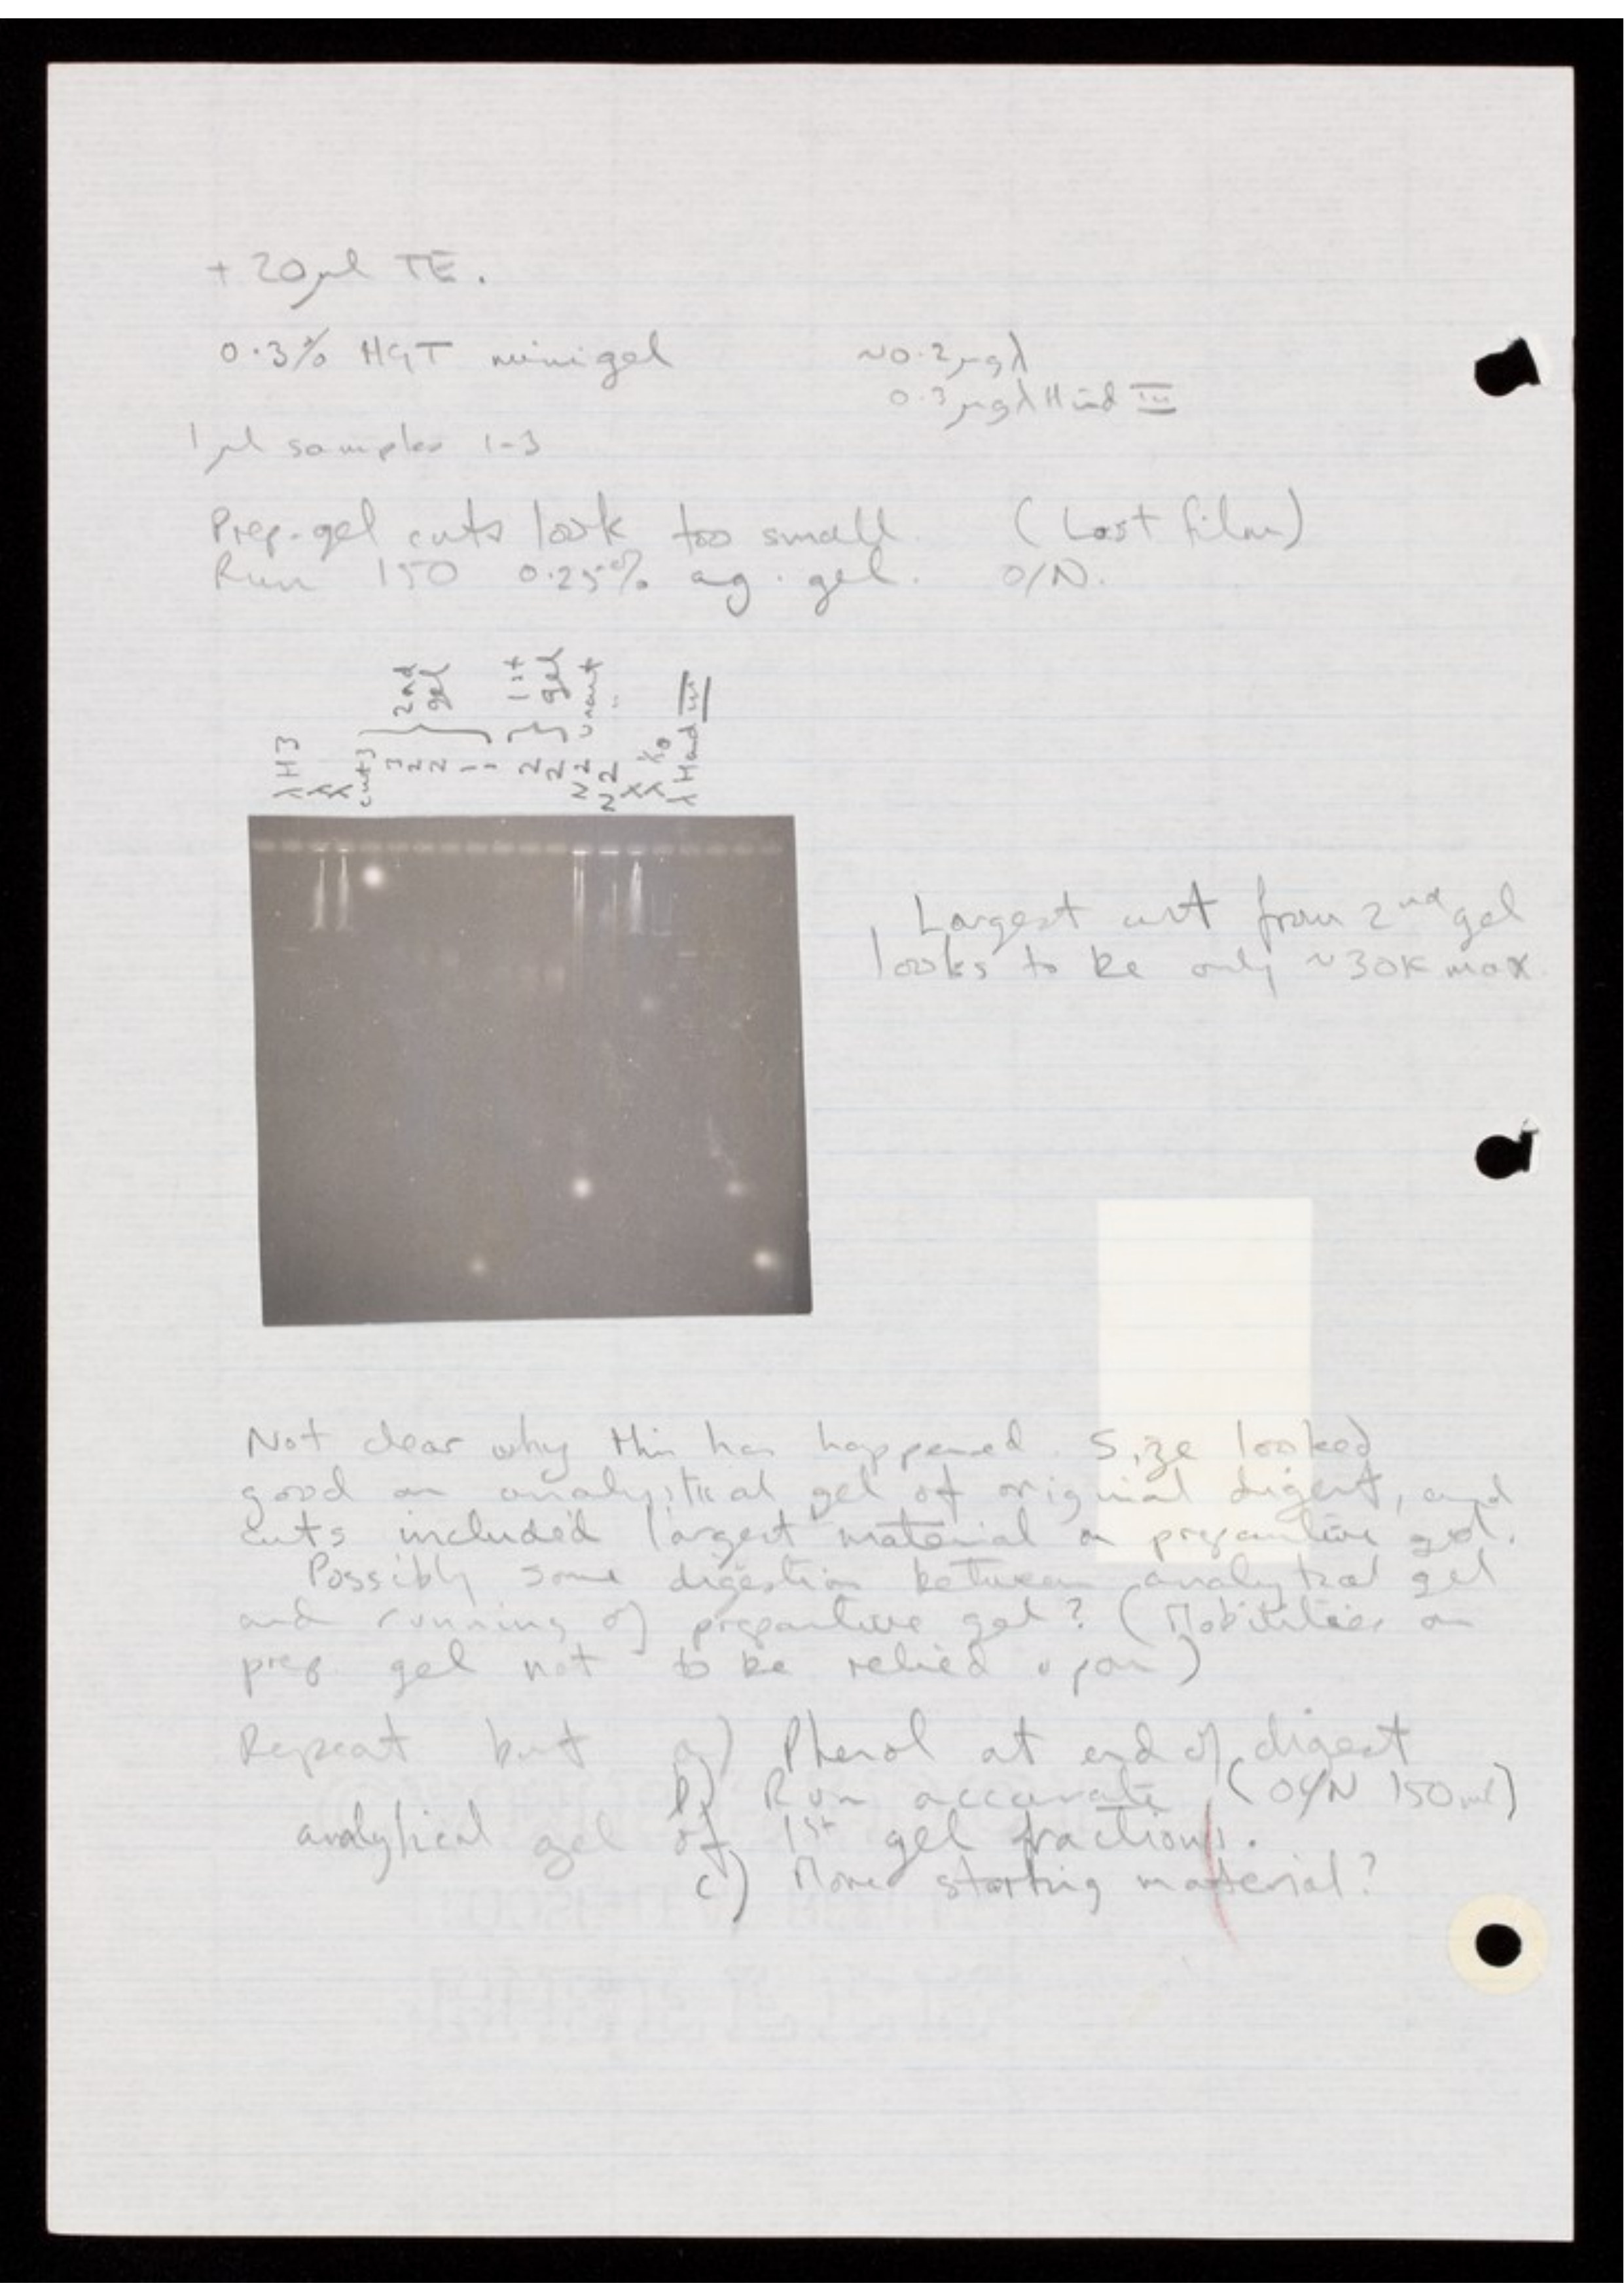 + 20μl TE.
0.3% HGT minigel ~0.2μgλ
0.3μgλ Hind III
1μl samples 1-3
Prep. gel cuts look too small. (Last film)
Run 150 0.25% ag. gel. O/N.
λH3
λ
λ
cut 3
3
2
2
1
1
2nd gel
2
2
1st gel
N2 uncut
N2 "
λ
λ 1/10
λ Hind III
Largest cut from 2nd gel
looks to be only ~30K max
Not clear why this has happened. Size looked
good on analytical gel of original digest, and
cuts included largest material on preparative gel.
Possibly some digestion between analytical gel
and running of preparative gel? (Mobilities on
prep. gel not to be relied upon)
Repeat but a) Phenol at end of digest
b) Run accurate (O/N 150ml)
analytical gel of 1st gel fractions.
c) More starting material?